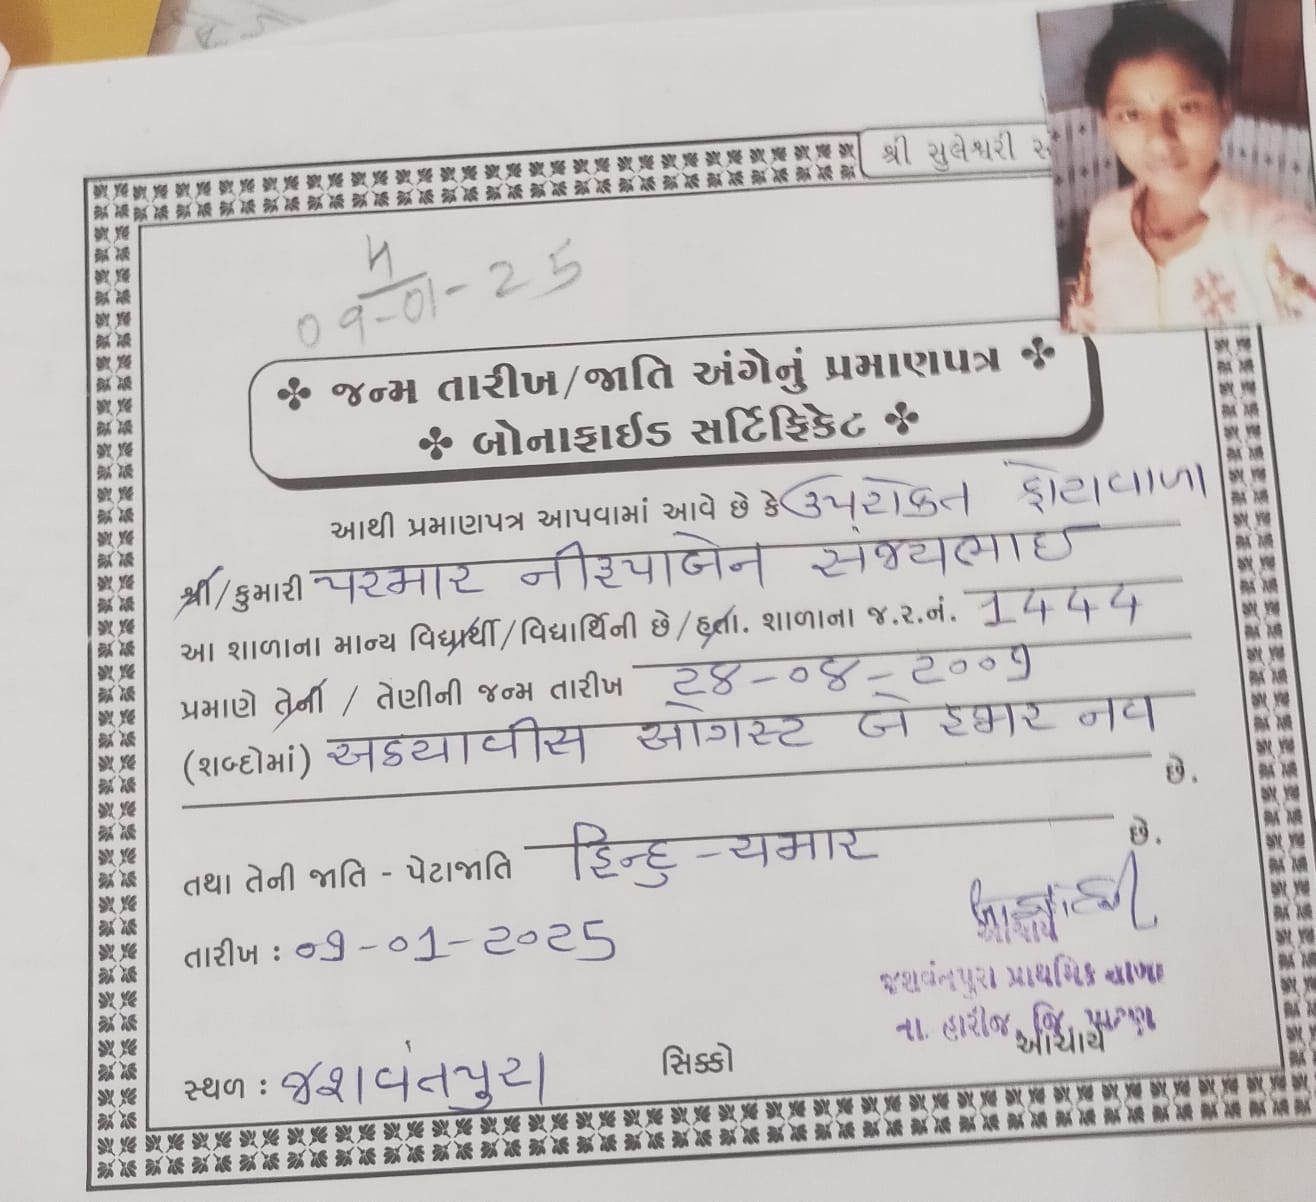 શ્રી સુલેશ્વરી
09-01-25
જન્મ તારીખ/જાતિ અંગેનું પ્રમાણપત્ર
બોનાફાઈડ સર્ટિફિકેટ
આથી પ્રમાણપત્ર આપવામાં આવે છે કે ઉપરોક્ત ફોટાવાળા
શ્રી/કુમારી પરમાર નીરૂપાબેન સંજયભાઈ
આ શાળાના માન્ય વિદ્યાર્થી/વિદ્યાર્થિની છે/હતા. શાળાના જ.ર.નં. 1444
પ્રમાણે તેની / તેણીની જન્મ તારીખ ૨૪-૦૪-૨૦૦૯
(શબ્દોમાં) અઠયાવીસ ઓગસ્ટ બે હજાર નવ
છે.
તથા તેની જાતિ - પેટાજાતિ હિન્દુ - ચમાર છે.
તારીખ : ૦9-01-2025
આચાર્ય
જશવંતપુરા પ્રાથમિક શાળા
તા. હારીજ, જિ. પાટણ
સ્થળ : જશવંતપુરા સિક્કો આચાર્ય